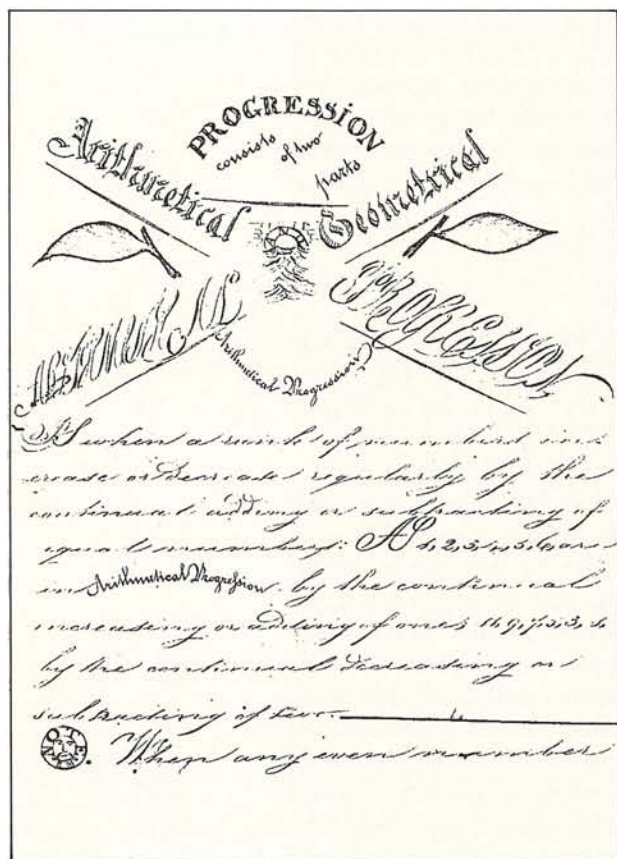 PROGRESSION
consists of two parts
Arithmetical Geometrical
ARITHMETICAL PROGRESSION
Arithmetical Progression
IS when a rank of numbers inc
crease or decrease regularly by the
continual adding or subtracting of
equal numbers: AS 1, 2, 3, 4, 5, 6, are
in Arithmetical Progression by the continual
increasing or adding of one; 11, 9, 7, 5, 3, 1,
by the continual decreasing or
subtracting of two.
NOTE. When any even number